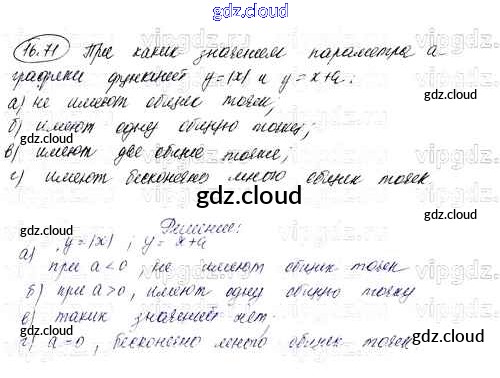 gdz.cloud
16.71 При каких значениях параметра a
графики функций y=|x| и y=x+a:
а) не имеют общих точек;
б) имеют одну общую точку;
в) имеют две общие точки;
г) имеют бесконечно много общих точек.
gdz.cloud
Решение:
а) y=|x| ; y= x+a
при a<0, не имеют общих точек
б) при a>0, имеют одну общую точку
в) таких значений нет.
г) a=0, бесконечно много общих точек
gdz.cloud